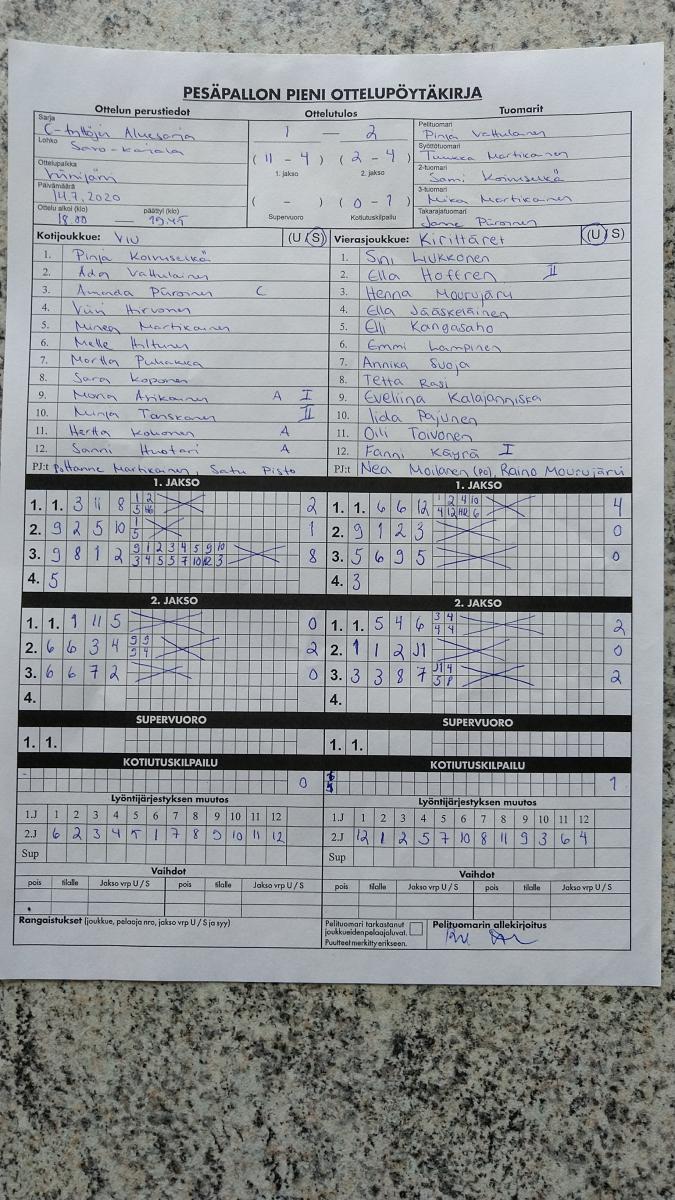 PESÄPALLON PIENI OTTELUPÖYTÄKIRJA
Ottelun perustiedot Ottelutulos Tuomarit
Sarja C-tyttöjen Aluesarja
Lohko Savo-Karjala
Ottelupaikka Viinijärvi
Päivämäärä 14.7.2020
Ottelu alkoi (klo) päättyi (klo)
18.00 — 19.45
1 — 2
(11 - 4) (2 - 4)
1. jakso 2. jakso
( - ) (0 - 1)
Supervuoro Kotiutuskilpailu
Pelituomari Pinja Vattulainen
Syöttötuomari Tuukka Martikainen
2-tuomari Sami Koivuselkä
3-tuomari Mika Martikainen
Takarajatuomari Janne Piironen
Kotijoukkue: ViU (U S)
1. Pinja Koivuselkä
2. Ada Vattulainen
3. Amanda Piironen C
4. Viivi Hirvonen
5. Minea Martikainen
6. Melle Hiltunen
7. Martta Puhakka
8. Sara Koponen
9. Maria Asikainen A I
10. Minja Tanskanen II
11. Hertta Kokonen A
12. Sanni Huotari A
PJ:t Hanne Martikainen, Satu Pisto
Vierasjoukkue: Kirittäret (U S)
1. Sini Liukkonen
2. Ella Hoffren II
3. Henna Mourujärvi
4. Ella Jääskeläinen
5. Elli Kangasaho
6. Emmi Lampinen
7. Annika Suoja
8. Tetta Rasi
9. Eveliina Kalajanniska
10. Iida Pajunen
11. Oili Toivonen
12. Fanni Käyrä I
PJ:t Nea Moilanen (po), Raino Mourujärvi
1. JAKSO
1. 1. 3 11 8 2
2. 9 2 5 10 1
3. 9 8 1 2 8
4. 5
2. JAKSO
1. 1. 9 11 5 0
2. 6 6 3 4 2
3. 6 6 7 2 0
4.
SUPERVUORO
1. 1.
KOTIUTUSKILPAILU
0
Lyöntijärjestyksen muutos
1.J 1 2 3 4 5 6 7 8 9 10 11 12
2.J 6 2 3 4 5 1 7 8 9 10 11 12
Sup
Vaihdot
pois tilalle Jakso vrp U / S pois tilalle Jakso vrp U / S
Rangaistukset (joukkue, pelaaja nro, jakso vrp U / S ja syy)
1. JAKSO
1. 1. 6 6 12 4
2. 9 1 2 3 0
3. 5 6 9 5 0
4. 3
2. JAKSO
1. 1. 5 4 6 2
2. 1 1 2 J1 0
3. 3 3 8 7 2
4.
SUPERVUORO
1. 1.
KOTIUTUSKILPAILU
1
Lyöntijärjestyksen muutos
1.J 1 2 3 4 5 6 7 8 9 10 11 12
2.J 12 1 2 5 7 10 8 11 9 3 6 4
Sup
Vaihdot
pois tilalle Jakso vrp U / S pois tilalle Jakso vrp U / S
Pelituomari tarkastanut joukkueiden pelaajaluvat.
Puutteet merkitty erikseen.
Pelituomarin allekirjoitus